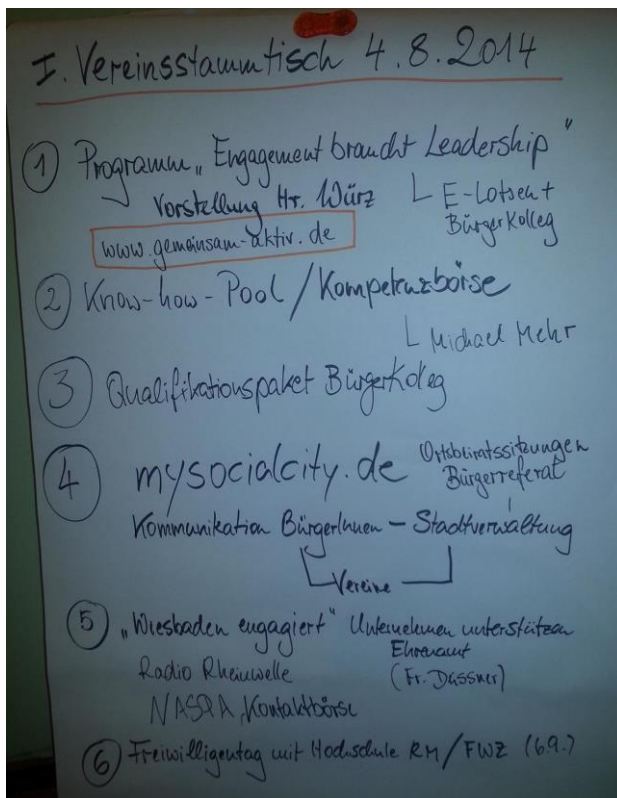 I. Vereinsstammtisch 4.8.2014
① Programm „Engagement braucht Leadership"
Vorstellung Hr. Würz
└ E-Lotsen +
BürgerKolleg
www.gemeinsam-aktiv.de
② Know-how-Pool / Kompetenzbörse
└ Michael Mehr
③ Qualifikationspaket BürgerKolleg
④ mysocialcity.de
Ortsbeiratssitzungen
Bürgerreferat
Kommunikation BürgerInnen – Stadtverwaltung
Vereine
⑤ „Wiesbaden engagiert" Unternehmen unterstützen
Ehrenamt
Radio Rheinwelle
(Fr. Dassner)
Kontaktbörse
⑥ Freiwilligentag mit Hochschule RM / FWZ (6.9.)